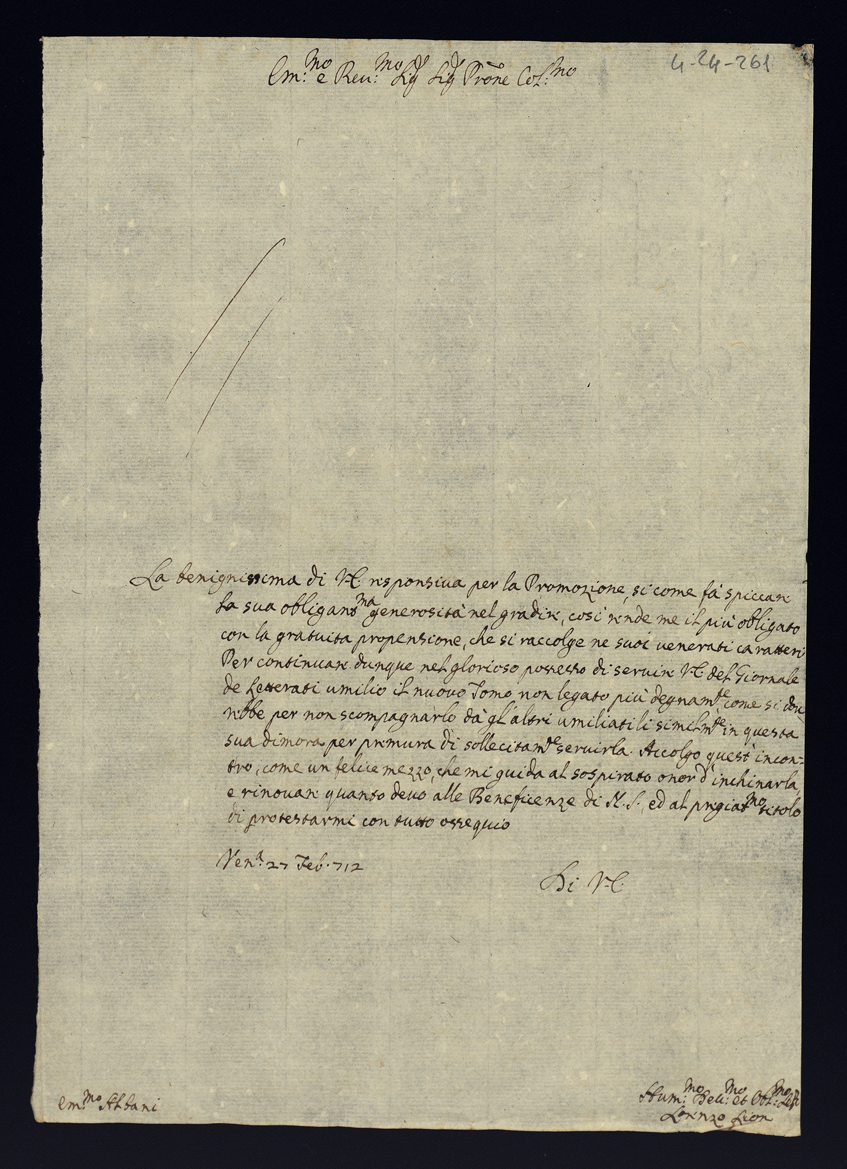 4-24-261
Em:mo e Reu:mo Sig Sig Prone Col:mo
La benignissima di V.E. responsiua per la Promozione, si come fà spiccare
la sua obligantma generosità nel gradire, così rende me il più obligato
con la gratuita propensione, che si raccolge ne suoi uenerati caratteri
Per continuare dunque nel glorioso possesso di seruire V.E. del Giornale
de Letterati umilio il nuouo Tomo non legato più degnamte come si dou
rebbe per non scompagnarlo dà gl'altri umiliatili similmte in questa
sua dimora per premura di sollecitamte seruirla. Accolgo quest'incon-
tro, come un felice mezzo, che mi guida al sospirato onor d'inchinarla,
e rinouare quanto deuo alle Beneficenze di N.S. ed al pregiatmo titolo
di protestarmi con tutto ossequio
Vena: 27 Feb. 712
Di V.E.
Em:mo Albani
Hum:mo Deu:mo et Obl:mo
Lorenzo Lion